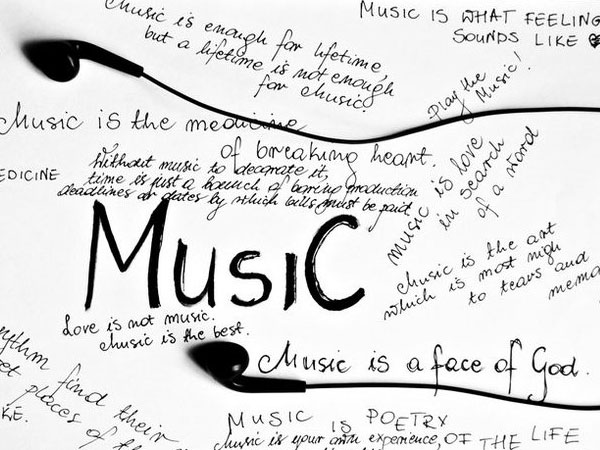 Music is enough for lifetime,
but a lifetime is not enough
for Music!
MUSIC IS WHAT FEELING
SOUNDS LIKE
Play the
Music!
Music is the medicine
of breaking heart.
EDICINE
Without music to decorate it,
time is just a bounch of boring production
deadlines or dates by which bills must be paid
music is love
in search
of a word
Music is the art
which is most nigh
to tears and
memo
MusiC
Love is not music.
Music is the best.
Music is a face of God.
ythm find their
et places of
KE.
MUSIC IS POETRY
Music is your own experience, OF THE LIFE